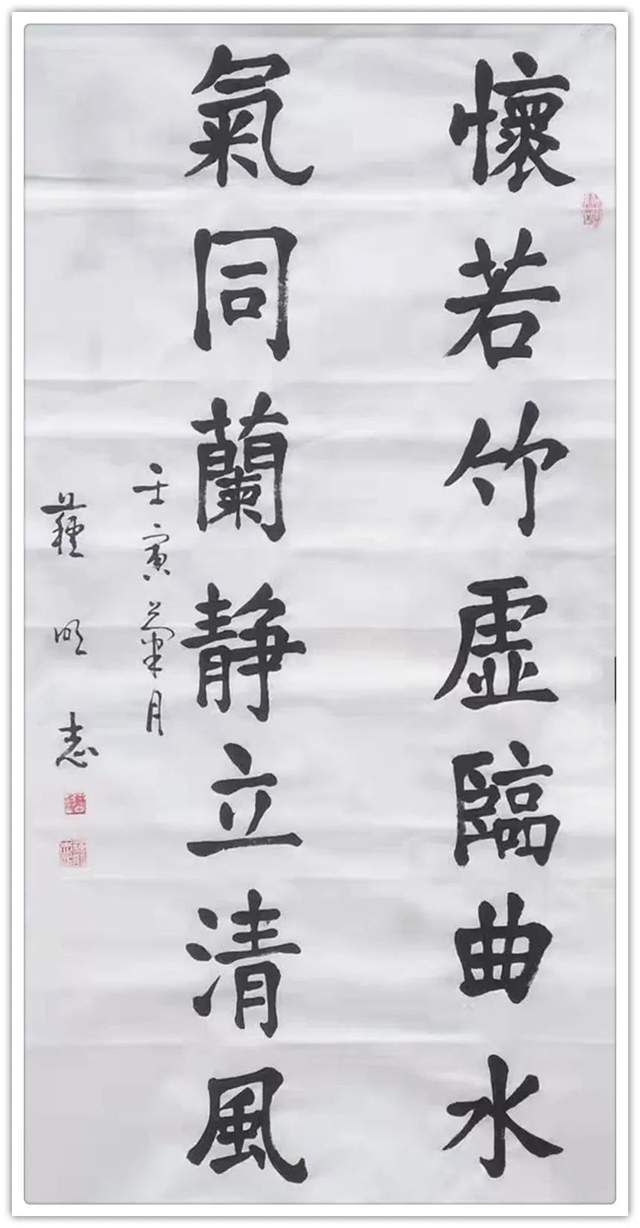 懷若竹虛臨曲水
氣同蘭静立清風
壬寅菊月
蘇明志